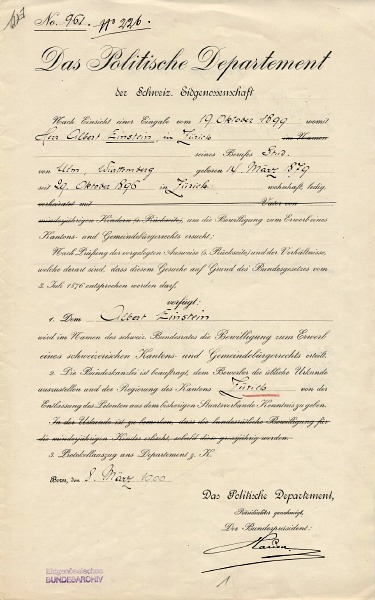 No. 961. Nº 226.
Das Politische Departement
der Schweiz. Eidgenossenschaft
Nach Einsicht einer Eingabe vom 19. Oktober 1899 womit
Herr Albert Einstein, in Zürich im Namen
seines Berufes Stud.
von Ulm, Württemberg geboren 14. März 1879
seit 29. Oktober 1896 in Zürich wohnhaft, ledig,
verheiratet mit Vater von
minderjährigen Kindern (s. Rückseite), um die Bewilligung zum Erwerb eines
Kantons- und Gemeindebürgerrechts ersucht;
Nach Prüfung der vorgelegten Ausweise (s. Rückseite) und der Verhältnisse,
welche derart sind, dass diesem Gesuche auf Grund des Bundesgesetzes vom
3. Juli 1876 entsprochen werden darf,
verfügt:
1. Dem Albert Einstein
wird im Namen des schweiz. Bundesrates die Bewilligung zum Erwerb
eines schweizerischen Kantons- und Gemeindebürgerrechts erteilt.
2. Die Bundeskanzlei ist beauftragt, dem Bewerber die übliche Urkunde
auszustellen und der Regierung des Kantons Zürich von der
Entlassung des Petenten aus dem bisherigen Staatsverbande Kenntnis zu geben.
In der Urkunde ist zu bemerken, dass die bundesrätliche Bewilligung für
die minderjährigen Kinder erlischt, sobald diese grossjährig werden.
3. Protokollauszug ans Departement z. K.
Bern, den 8. März 1900
Das Politische Departement,
Der Bundespräsident:
Hauser
Eidgenössisches
BUNDESARCHIV
1